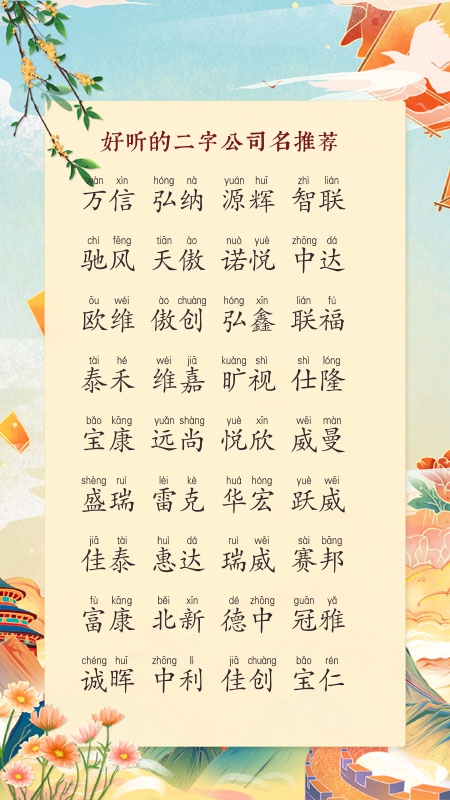 好听的二字公司名推荐
wàn xìn hóng nà yuán huī zhì lián
万信 弘纳 源辉 智联
chí fēng tiān ào nuò yuè zhōng dá
驰风 天傲 诺悦 中达
ōu wéi ào chuàng hóng xīn lián fú
欧维 傲创 弘鑫 联福
tài hé wéi jiā kuàng shì shì lóng
泰禾 维嘉 旷视 仕隆
bǎo kāng yuǎn shàng yuè xīn wēi màn
宝康 远尚 悦欣 威曼
shèng ruì léi kè huá hóng yuè wēi
盛瑞 雷克 华宏 跃威
jiā tài huì dá ruì wēi sài bāng
佳泰 惠达 瑞威 赛邦
fù kāng běi xīn dé zhōng guān yǎ
富康 北新 德中 冠雅
chéng huī zhōng lì jiā chuàng bǎo rén
诚晖 中利 佳创 宝仁